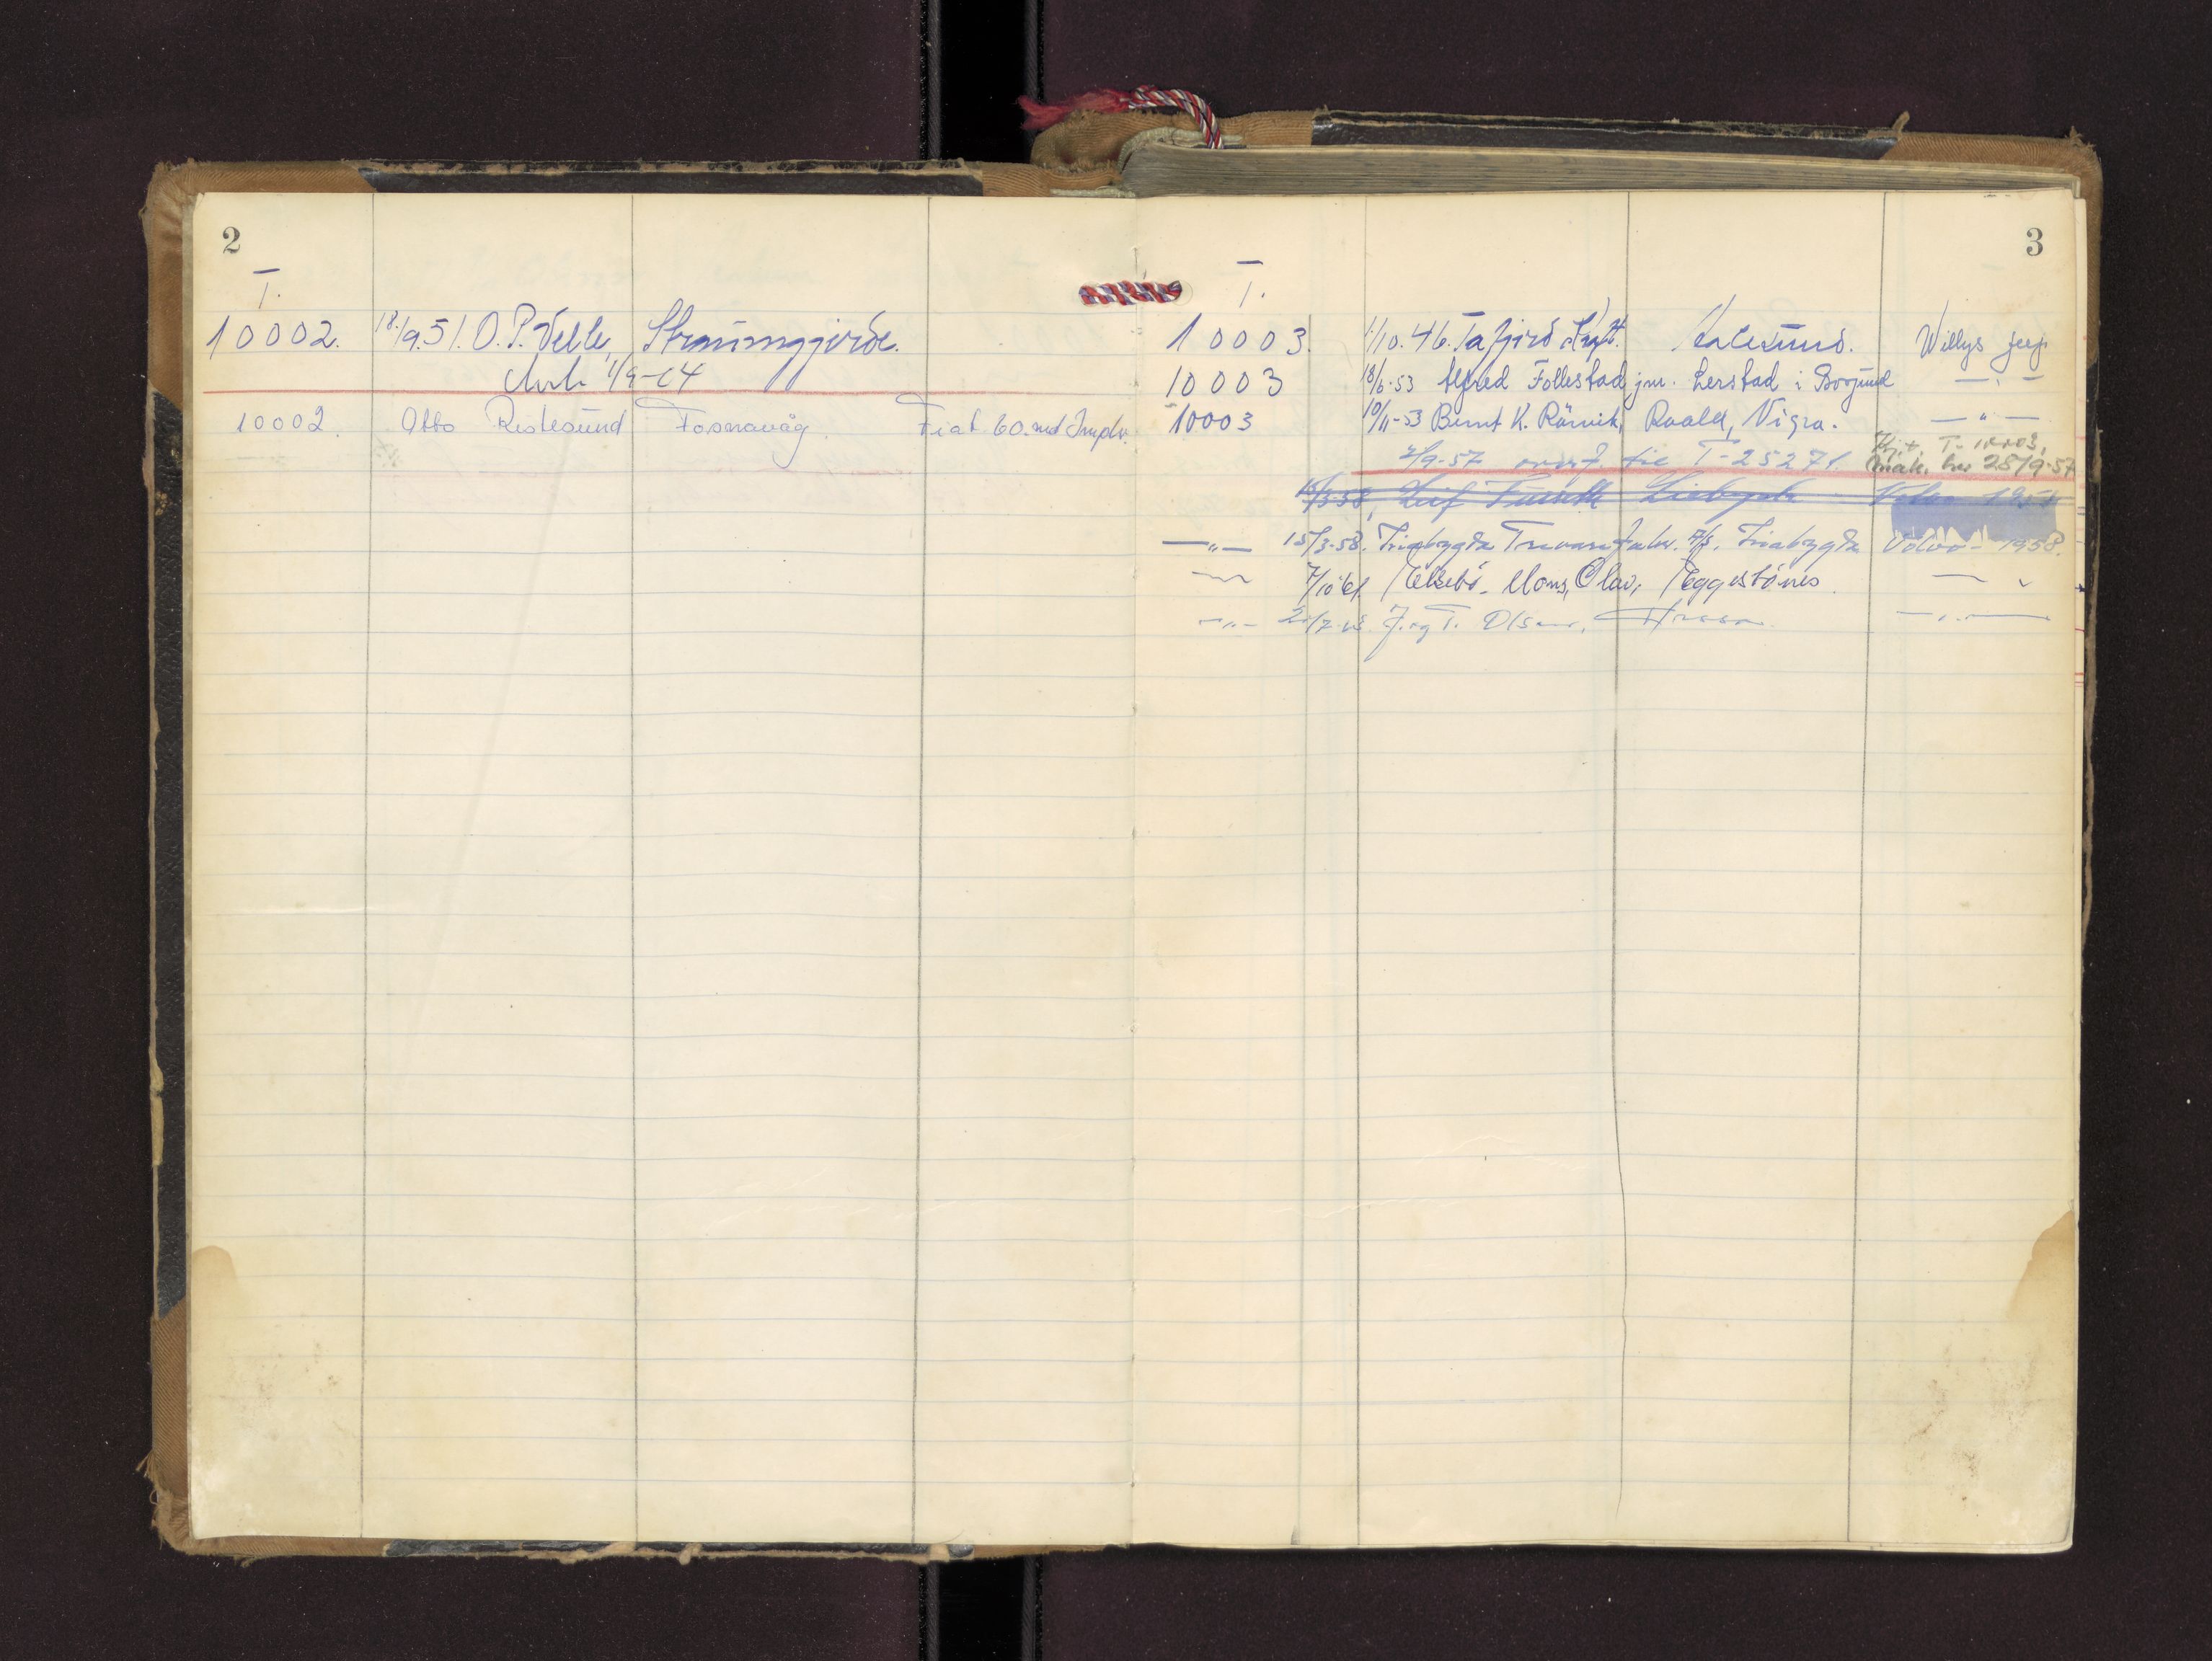 2
T.
10002. 18./9.51. O. P. Velle, Straumgjerde.
Avh. 1/9-64
10002. Otto Ristesund Fosnavåg. Fiat 60. md
3
T.
10003. 1/10.46. Tafjord Kraft. Aalesund. Willys jeep
10003 18/6-53 Alfred Follestad jnr. Lerstad i Borgund — " —
10003 10/11-53 Bernt K. Rørvik, Roald, Vigra. — " —
2/9-57 overf. til T-25271. T-10003, mak. her 28/9-57
15/3-58, Leif
— " — 15/3-58. Liabygda Trevarefabr. A/S. Liabygda Volvo - 1958.
7/10 61. Mons, Olav, Eggesbönes.
— " — J. og T. Olsen, — " —